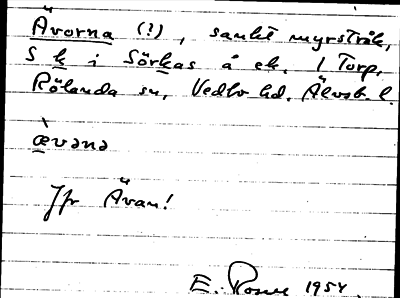 Ävorna (?), sankt myrstråk,
S k i Sörkas å ek. 1 Torp,
Rölanda sn, Vedbo hd. Älvsb. l.
ævəna
Jfr Ävan!
E. 1954